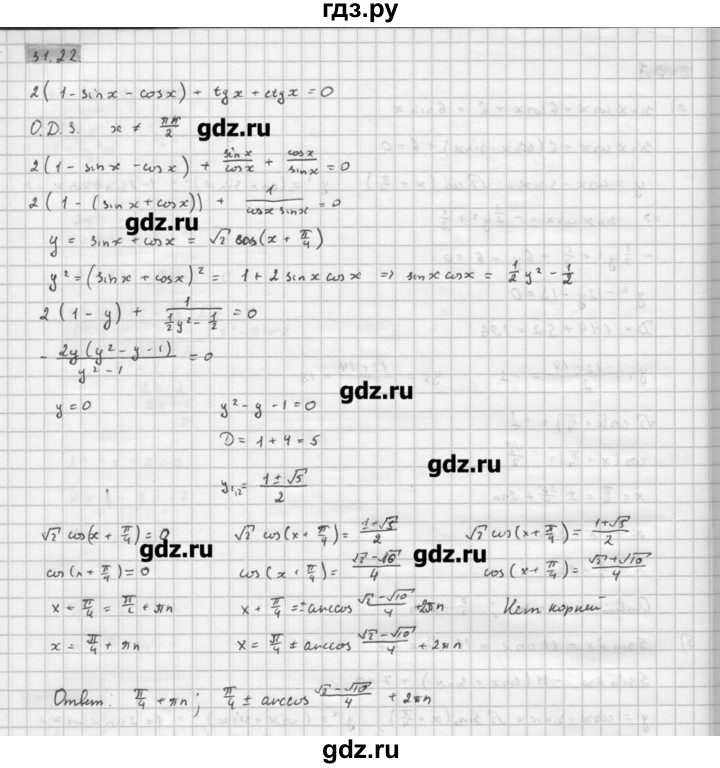 гдз.ру
31.22
2(1-sinx-cosx) + tgx + ctgx = 0
О.Д.З. x ≠ πn/2
gdz.ru
2(1 - sin x - cos x) + sin x/cos x + cos x/sin x = 0
2(1 - (sinx + cosx)) + 1/cosx sinx = 0
gdz.ru
y = sinx + cosx = √2 cos(x + π/4)
y² = (sinx + cosx)² = 1 + 2 sinx cosx ⇒ sinx cosx = 1/2 y² - 1/2
2(1 - y) + 1/(1/2 y² - 1/2) = 0
- 2y(y² - y - 1)/(y² - 1) = 0
gdz.ru
y = 0 y² - y - 1 = 0
D = 1 + 4 = 5
gdz.ru
y₁,₂ = (1 ± √5)/2
√2 cos(x + π/4) = 0 √2 cos(x + π/4) = (1+√5)/2 √2 cos(x + π/4) = (1+√5)/2
gdz.ru gdz.ru
cos(x + π/4) = 0 cos(x + π/4) = (√2 - √10)/4 cos(x + π/4) = (√2 + √10)/4
x + π/4 = π/2 + πn x + π/4 = ± arccos (√2 - √10)/4 + 2πn Нет корней
x = π/4 + πn x = π/4 ± arccos (√2 - √10)/4 + 2πn
Ответ: π/4 + πn; π/4 ± arccos (√2 - √10)/4 + 2πn
gdz.ru